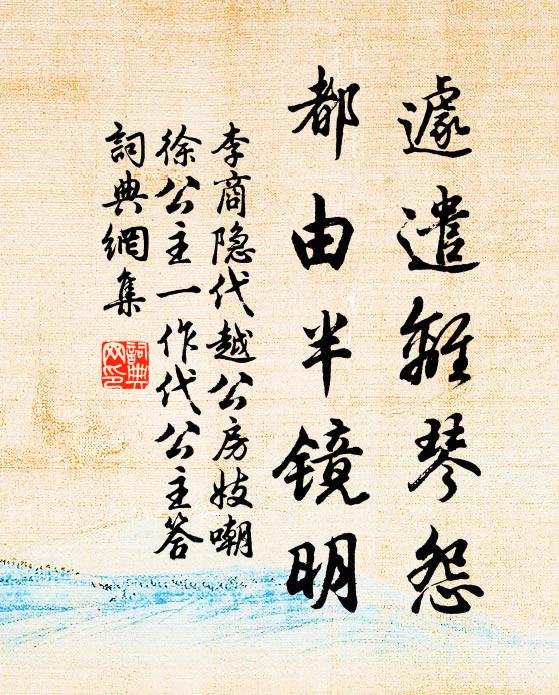 遽遣離琴怨
都由半镜明
李商隐代越公房妓嘲
徐公主一作代公主答
詞典網集
詞典網印